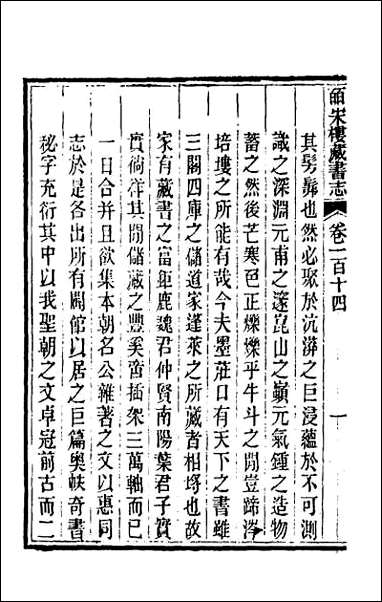 皕宋樓藏書志 卷一百十四 一
其髣髴也然必聚於沆漭之巨浸蘊於不可測
識之深淵元甫之邃崑山之巔元氣鍾之造物
蓄之然後芒寒色正爍爍乎牛斗之間豈蹄涔
培塿之所能有哉今夫墨莊口有天下之書雖
三閣四庫之儲道家蓬萊之所藏者相埒也故
家有藏書之富鉅鹿魏君仲賢南陽葉君子實
實徜徉其間儲藏之豐奚啻插架三萬軸而已
一日合并且欲集本朝名公雜著之文以惠同
志於是各出所有闢館以居之巨篇奧帙奇書
秘字充衍其中以我聖朝之文卓冠前古而二